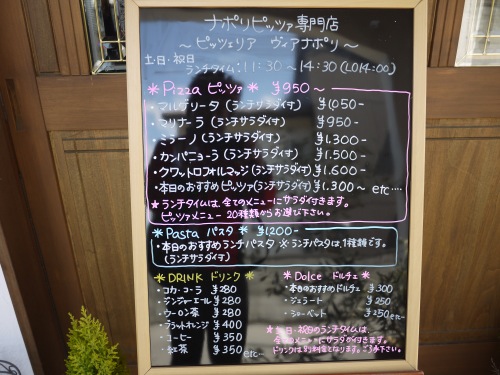 ナポリピッツァ専門店
～ピッツェリア ヴィアナポリ～
土・日・祝日
ランチタイム:11:30～14:30(LO14:00)
＊Pizza ピッツァ＊ ¥950～
・マルゲリータ(ランチサラダ付) ¥1,050-
・マリナーラ(ランチサラダ付) ¥950-
・ミラーノ(ランチサラダ付) ¥1.300-
・カンパニョーラ(ランチサラダ付) ¥1.500-
・クワットロフォルマッジ(ランチサラダ付) ¥1.600-
・本日のおすすめピッツァ(ランチサラダ付) ¥1.300～ etc....
★ランチタイムは、全てのメニューにサラダ付きます。
ピッツァメニュー 20種類からお選び下さい。
＊Pasta パスタ＊ ¥1,200-
・本日のおすすめランチパスタ ※ランチパスタは、1種類です。
(ランチサラダ付)
＊DRINK ドリンク＊
・コカ・コーラ ¥280
・ジンジャーエール ¥280
・ウーロン茶 ¥280
・ブラッドオレンジ ¥400
・コーヒー ¥350
・紅茶 ¥350 etc...
＊Dolce ドルチェ＊
・本日のおすすめドルチェ ¥300
・ジェラート ¥250
・シャーベット ¥250 etc...
★土・日・祝日のランチタイムは、
全てのメニューにサラダ付きます。
ドリンクは別料金となります。ご了承下さい。